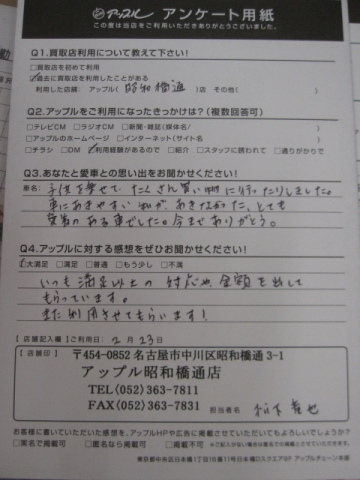 アップル アンケート用紙
この度は当店をご利用いただきありがとうございました。
Q1.買取店利用について教えて下さい!
□買取店を初めて利用
☑過去に買取店を利用したことがある
利用した店舗: アップル( 昭和橋通 )店 その他( )
Q2.アップルをご利用になったきっかけは?(複数回答可)
□テレビCM □ラジオCM □新聞・雑誌(媒体名/ )
□アップルのホームページ □インターネット(サイト名 )
□チラシ □DM ☑利用経験があるので □紹介 □スタッフに誘われて □通りがかりで
Q3.あなたと愛車との思い出をお聞かせください!
車名: 子供を乗せて、たくさん買い物に行ったりしました。
車にあきやすい私が、あきなかった、とても
愛着のある車でした。今までありがとう。
Q4.アップルに対する感想をぜひお聞かせください!
☑大満足 □満足 □普通 □もう少し □不満
いつも満足以上の対応や金額を出して
もらっています。
また利用させてもらいます!
【店舗記入欄】ご利用日: 2月 23日
【店舗印】
〒454-0852 名古屋市中川区昭和橋通3-1
アップル昭和橋通店
TEL(052)363-7811
FAX(052)363-7831
担当者名
お客様に書いていただいた感想を、アップルHPや広告に掲載させていただいてもよろしいでしょうか?
□実名で掲載可 □匿名なら掲載可 □掲載不可
東京都中央区日本橋1丁目16番11号日本橋Dスクエア5F アップルチェーン本部